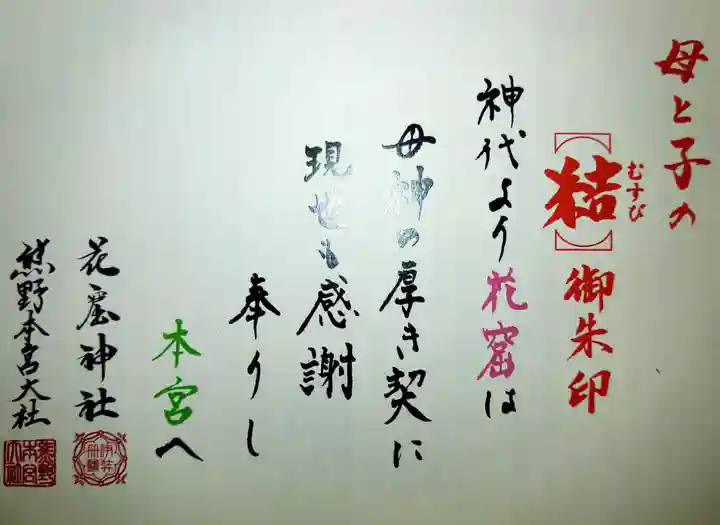 母と子の
【結】御朱印
むすび
神代より花窟は
母神の厚き契に
現世も感謝
奉りし
本宮へ
花窟神社
熊野本宮大社
熊野本宮大社